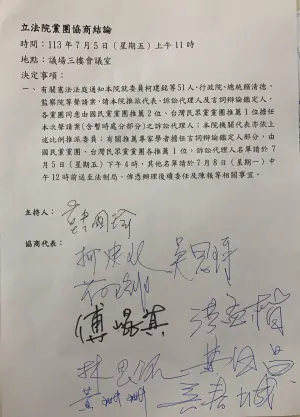 立法院黨團協商結論
時間：113 年 7 月 5 日（星期五）上午 11 時
地點：議場三樓會議室
決定事項：
一、有關憲法法庭通知本院就委員柯建銘等 51 人、行政院、總統賴清德、
監察院等聲請案，請本院推派代表、訴訟代理人及言詞辯論鑑定人，
各黨團同意由國民黨黨團推薦 2 位、台灣民眾黨黨團推薦 1 位擔任
本次聲請案（含暫時處分部分）之訴訟代理人；本院機關代表亦依上
述比例推派委員；有關推薦專家學者擔任言詞辯論鑑定人部分，由
國民黨黨團、台灣民眾黨黨團各推薦 1 位。訴訟代理人名單請於 7
月 5 日（星期五）下午 4 時，其他名單請於 7 月 8 日（星期一）中
午 12 時前送至法制局，俾憑辦理後續委任及陳報等相關事宜。
主持人：
韓國瑜
協商代表：
柯建銘 吳思瑤
傅崐萁
洪孟楷
林思銘
黃珊珊